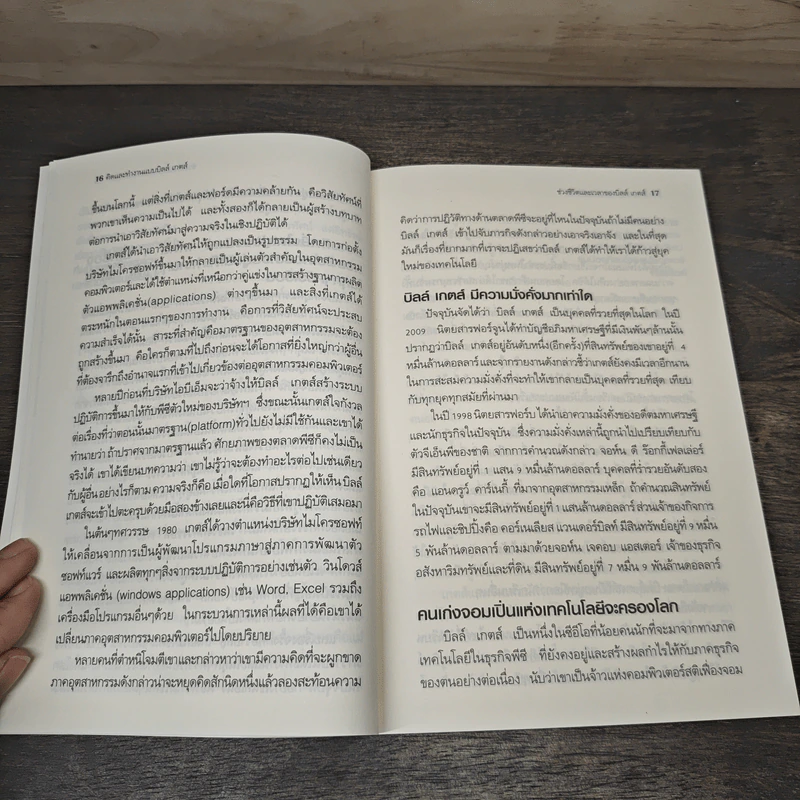 16 คิดและทำงานแบบบิลล์ เกตส์
ขึ้นบนโลกนี้ แต่สิ่งที่เกตส์และฟอร์ดมีความคล้ายกัน คือวิสัยทัศน์ที่
พวกเขาเห็นความเป็นไปได้ และทั้งสองก็ได้กลายเป็นผู้สร้างบทบาท
ต่อการนำเอาวิสัยทัศน์มาสู่ความจริงในเชิงปฏิบัติได้
เกตส์ได้นำเอาวิสัยทัศน์ให้ถูกแปลงเป็นรูปธรรม โดยการก่อตั้ง
บริษัทไมโครซอฟท์ขึ้นมาให้กลายเป็นผู้เล่นตัวสำคัญในอุตสาหกรรม
คอมพิวเตอร์และได้ใช้ตำแหน่งที่เหนือกว่าคู่แข่งในการสร้างฐานการผลิต
ตัวแอพพลิเคชั่น(applications) ต่างๆขึ้นมา และสิ่งที่เกตส์ได้
ตระหนักในตอนแรกๆของการทำงาน คือการที่วิสัยทัศน์จะประสบ
ความสำเร็จได้นั้น สาระที่สำคัญคือมาตรฐานของอุตสาหกรรมจะต้อง
ถูกสร้างขึ้นมา คือใครก็ตามที่ไปถึงก่อนจะได้โอกาสที่ยิ่งใหญ่กว่าผู้อื่น
ที่ต้องจารึกถึงอำนาจแรกที่เข้าไปเกี่ยวข้องต่ออุตสาหกรรมคอมพิวเตอร์
หลายปีก่อนที่บริษัทไอบีเอ็มจะว่าจ้างให้บิลล์ เกตส์สร้างระบบ
ปฏิบัติการขึ้นมาให้กับพีซีตัวใหม่ของบริษัทฯ ซึ่งขณะนั้นเกตส์ใจกังวล
ต่อเรื่องที่ว่าตอนนั้นมาตรฐาน(platform)ทั่วไปยังไม่มีใช้กันและเขาได้
ทำนายว่า ถ้าปราศจากมาตรฐานแล้ว ศักยภาพของตลาดพีซีก็คงไม่เป็น
จริงได้ เขาได้เขียนบทความว่า เขาไม่รู้ว่าจะต้องทำอะไรต่อไปเช่นเดียว
กับผู้อื่น อย่างไรก็ตาม ความจริงก็คือ เมื่อใดที่โอกาสปรากฏให้เห็น บิลล์
เกตส์จะเข้าไปตะครุบด้วยมือสองข้างเลยและนี่คือวิธีที่เขาปฏิบัติเสมอมา
ในต้นๆทศวรรษ 1980 เกตส์ได้วางตำแหน่งบริษัทไมโครซอฟท์
ให้เคลื่อนจากการเป็นผู้พัฒนาโปรแกรมภาษาสู่ภาคการพัฒนาตัว
ซอฟท์แวร์ และผลิตทุกๆสิ่งจากระบบปฏิบัติการอย่างเช่นตัว วินโดวส์
แอพพลิเคชั่น (windows applications) เช่น Word, Excel รวมถึง
เครื่องมือโปรแกรมอื่นๆด้วย ในกระบวนการเหล่านี้ผลที่ได้คือเขาได้
เปลี่ยนภาคอุตสาหกรรมคอมพิวเตอร์ไปโดยปริยาย
หลายคนที่ตำหนิโจมตีเขาและกล่าวหาว่าเขามีความคิดที่จะผูกขาด
ภาคอุตสาหกรรมดังกล่าวน่าจะหยุดคิดสักนิดหนึ่งแล้วลองสะท้อนความ
ช่วงชีวิตและเวลาของบิลล์ เกตส์ 17
คิดว่าการปฏิวัติทางด้านตลาดพีซีจะอยู่ที่ไหนในปัจจุบันถ้าไม่มีคนอย่าง
บิลล์ เกตส์ เข้าไปจับภารกิจดังกล่าวอย่างเอาจริงเอาจัง และในที่สุด
มันก็เรื่องที่ยากมากที่เราจะปฏิเสธว่าบิลล์ เกตส์ได้ทำให้เราได้ก้าวสู่ยุค
ใหม่ของเทคโนโลยี
บิลล์ เกตส์ มีความมั่งคั่งมากเท่าใด
ปัจจุบันจัดได้ว่า บิลล์ เกตส์ เป็นบุคคลที่รวยที่สุดในโลก ในปี
2009 นิตยสารฟอร์จูนได้ทำบัญชีอภิมหาเศรษฐีที่มีเงินพันๆล้านนั้น
ปรากฏว่าบิลล์ เกตส์อยู่อันดับหนึ่ง(อีกครั้ง)ที่สินทรัพย์ของเขาอยู่ที่ 4
หมื่นล้านดอลลาร์ และจากรายงานดังกล่าวชี้ว่าเกตส์ยังคงมีเวลาอีกนาน
ในการสะสมความมั่งคั่งที่จะทำให้เขากลายเป็นบุคคลที่รวยที่สุด เทียบ
กับทุกยุคทุกสมัยที่ผ่านมา
ในปี 1998 นิตยสารฟอร์บ ได้นำเอาความมั่งคั่งของอดีตมหาเศรษฐี
และนักธุรกิจในปัจจุบัน ซึ่งความมั่งคั่งเหล่านี้ถูกนำไปเปรียบเทียบกับ
ตัวจีเอ็นพีของชาติ จากการคำนวณดังกล่าว จอห์น ดี ร๊อกกี้เฟลเลอร์
มีสินทรัพย์อยู่ที่ 1 แสน 9 หมื่นล้านดอลลาร์ บุคคลที่ร่ำรวยอันดับสอง
คือ แอนดรูว์ คาร์เนกี้ ที่มาจากอุตสาหกรรมเหล็ก ถ้าคำนวณสินทรัพย์
ในปัจจุบันเขาจะมีสินทรัพย์อยู่ที่ 1 แสนล้านดอลลาร์ ส่วนเจ้าของกิจการ
รถไฟและชิปปิ้งคือ คอร์เนเลียส แวนเดอร์บิลท์ มีสินทรัพย์อยู่ที่ 9 หมื่น
5 พันล้านดอลลาร์ ตามมาด้วยจอห์น เจคอบ แอสเตอร์ เจ้าของธุรกิจ
อสังหาริมทรัพย์และที่ดิน มีสินทรัพย์อยู่ที่ 7 หมื่น 9 พันล้านดอลลาร์
คนเก่งจอมเปิ่นแห่งเทคโนโลยีจะครองโลก
บิลล์ เกตส์ เป็นหนึ่งในซีอีโอที่น้อยคนนักที่จะมาจากทางภาค
เทคโนโลยีในธุรกิจพีซี ที่ยังคงอยู่และสร้างผลกำไรให้กับภาคธุรกิจ
ของตนอย่างต่อเนื่อง นับว่าเขาเป็นจ้าวแห่งคอมพิวเตอร์สติเฟื่องจอม